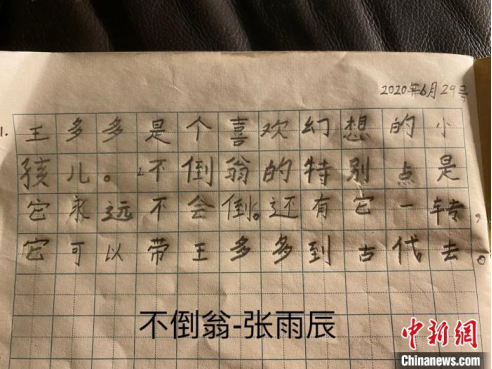 2020年6月29号
1. 王多多是个喜欢幻想的小
孩儿。不倒翁的特别点是
它永远不会倒。还有它一转，
它可以带王多多到古代去。
不倒翁-张雨辰
中新网
Chinanews.com